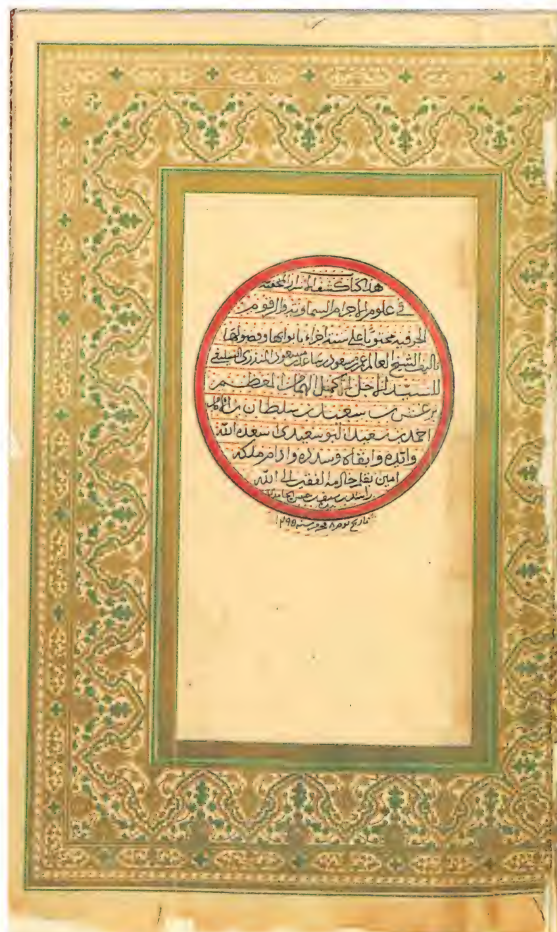 هذا كتاب كشف الأسرار المخفية
في علوم الأجرام السماوية والرقوم
الحرفية محتويا على ستة اجزاء بابوابها وفصولها
تاليف الشيخ العالم عمر بن مسعود بن ساعد بن مسعود المنذري السليفي
للسيد الأجل الأكمل الهمام المعظم
برغش بن سعيد بن سلطان بن الامام
احمد بن سعيد البوسعيدي اسعده الله
وايده وابقاه وسدده وادام ملكه
امين بقلم خادمه الفقير الى الله
راشد بن سعيد
تاريخ يوم ٨ محرم سنة ١٢٩٥